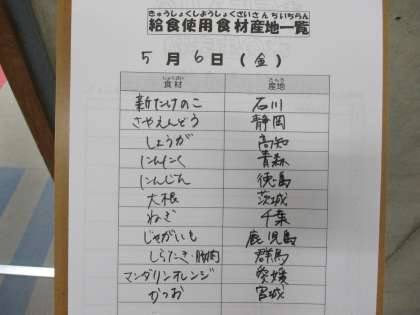 きゅうしょくしようしょくざいさんちいちらん
給食使用食材産地一覧
5月6日(金)
しょくざい さんち
食材 産地
新たけのこ 石川
さやえんどう 静岡
しょうが 高知
にんにく 青森
にんじん 徳島
大根 茨城
ねぎ 千葉
じゃがいも 鹿児島
しらたき・豚肉 群馬
マンダリンオレンジ 愛媛
かつお 宮城